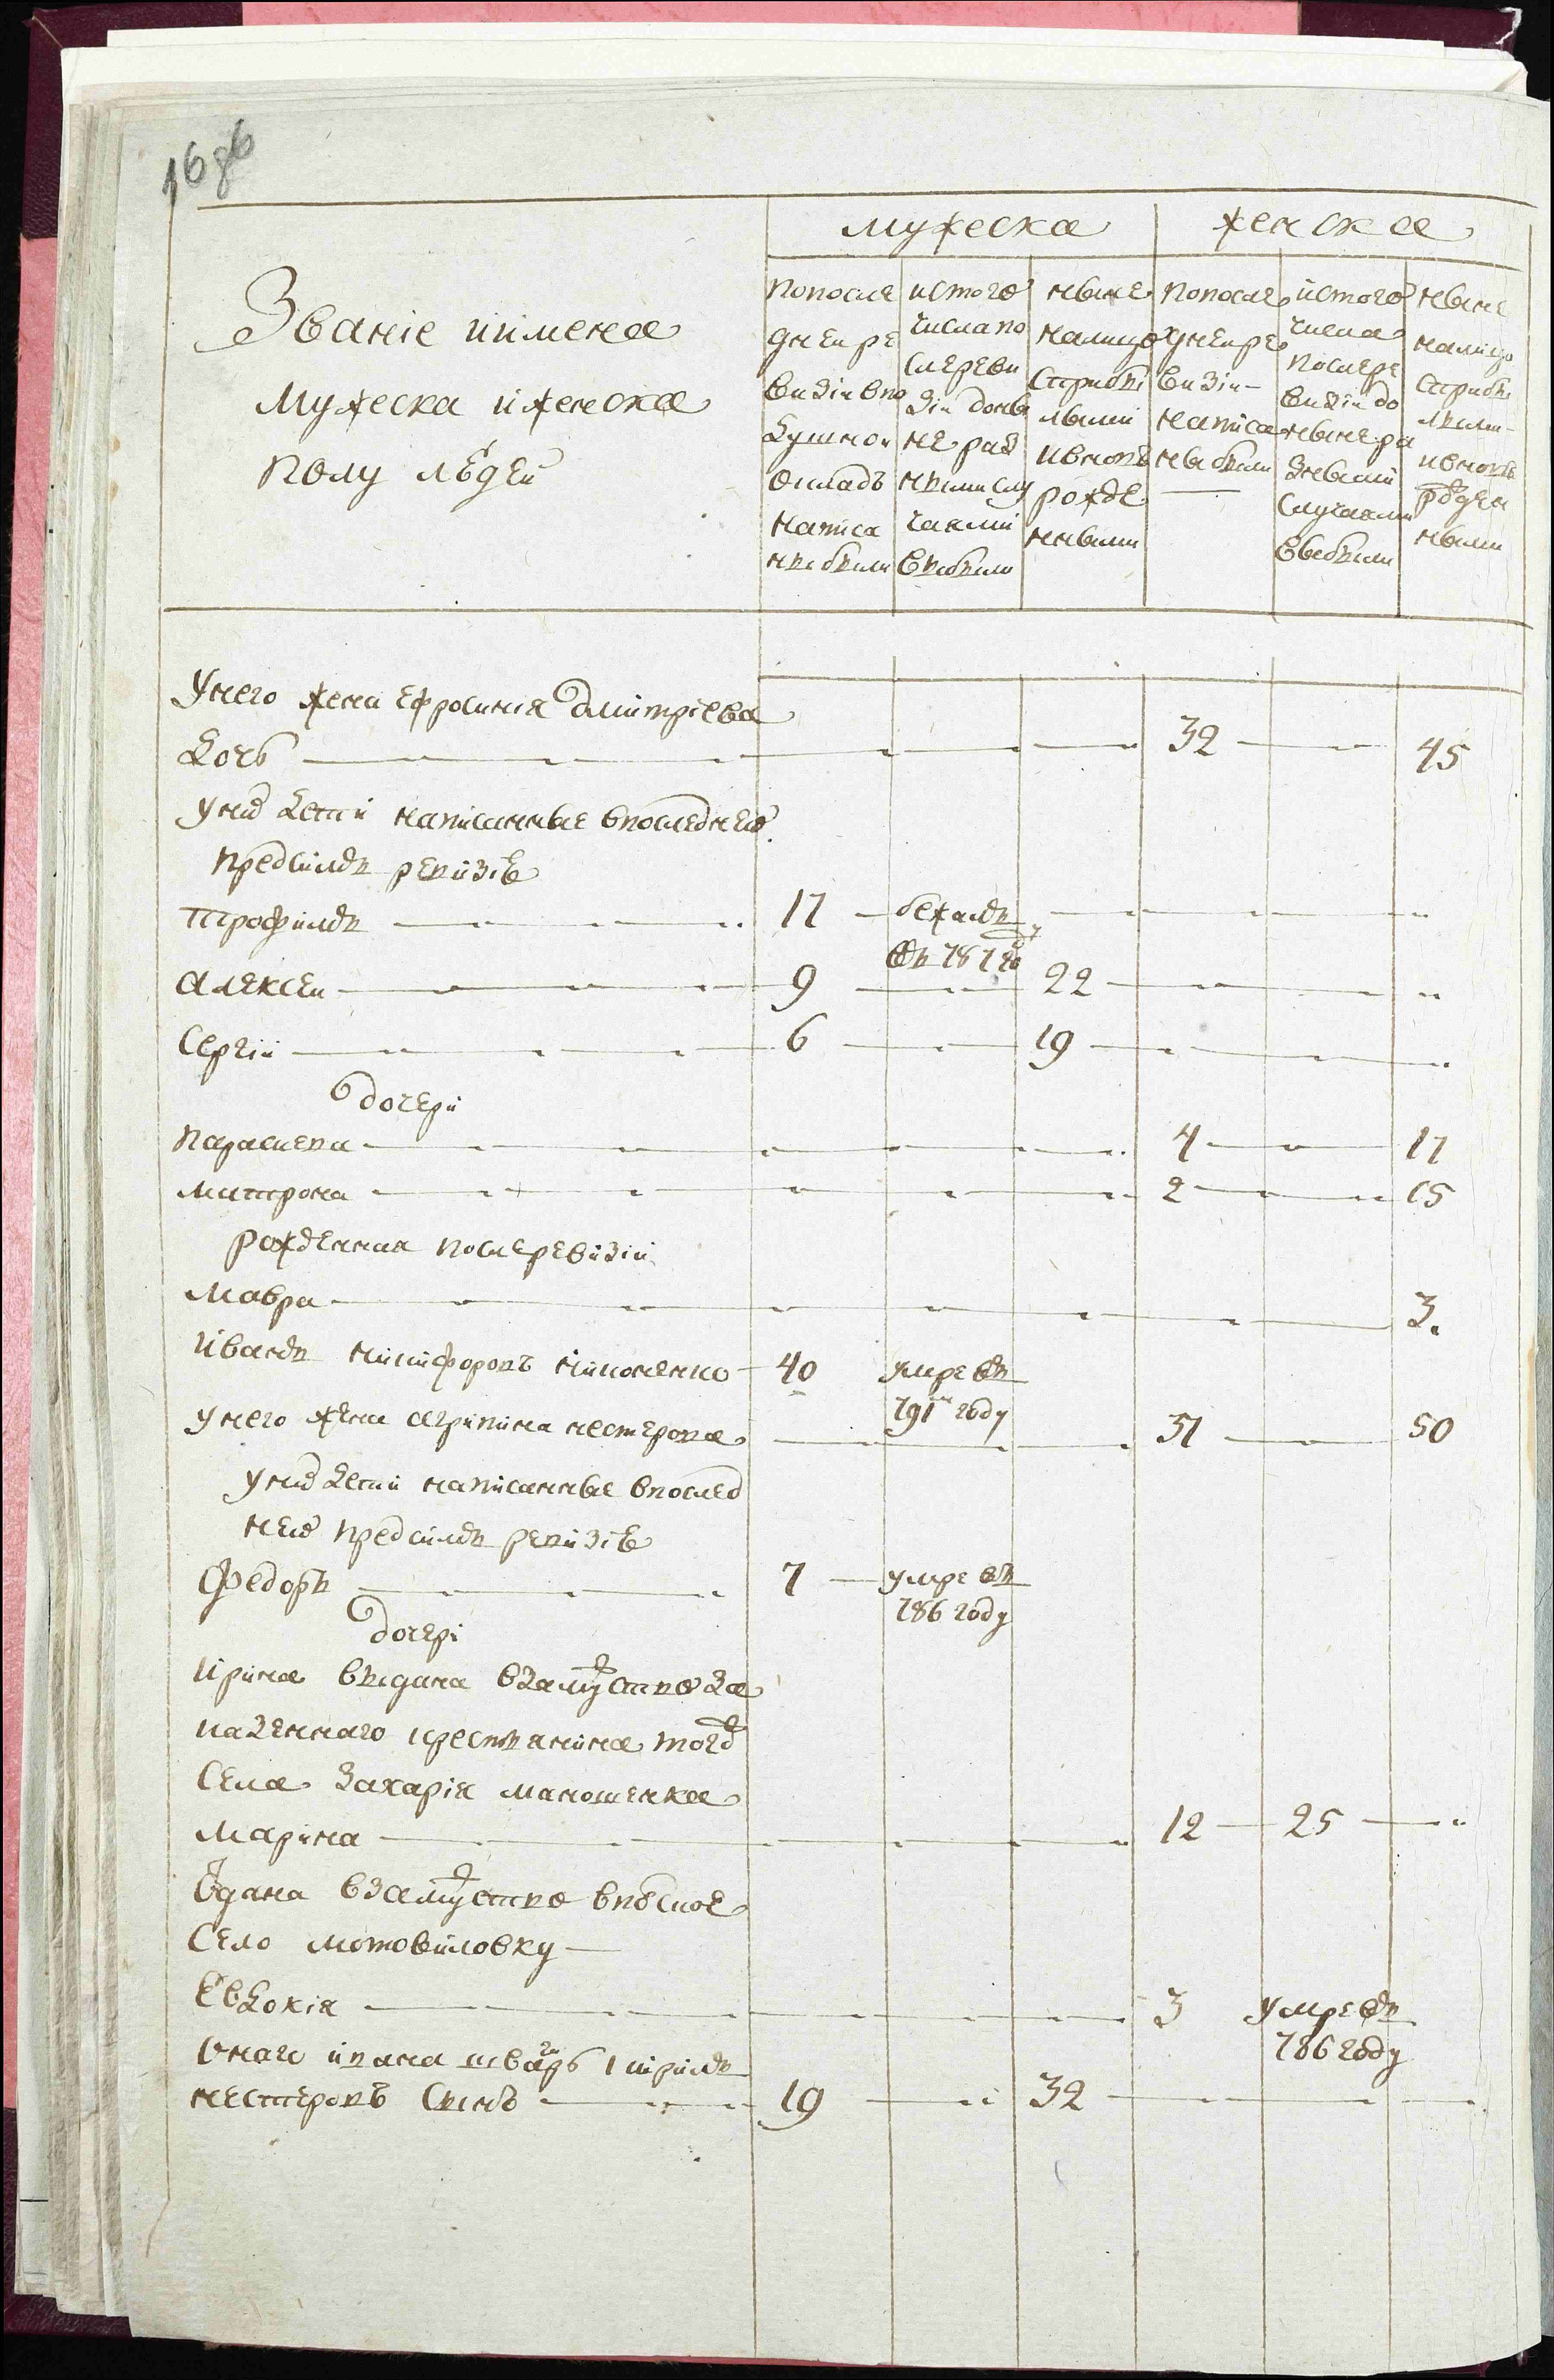 16 об
мужеска женска
Званіе иимена
Мужеска иженска
полу людей
попосле
дней ре
визіи впо
душной
окладъ
написа
ны были
истого
числа по
слереви
зіи доны
не раз
ными слу
чаями
выбыли
ныне
налицо
сприбы
лыми
ивновь
рожде
нными
попосле
дней ре
визіи
написа
ны были
истого
числа
послере
визіи до
ныне ра
зными
случаями
выбыли
ныне
налицо
сприбы
лыми
ивновь
рожден
ными
Унего жена ефросиния дмитріева
дочь 32 45
уних дети написанные впоследнею
предсимъ ревизіею
Трофимъ 17 бежалъ
въ 787 го
алексеи 9 22
Сергіи 6 19
дочери
параскева 4 17
матрона 2 15
рожденная послеревизіи
мавра 3.
иванъ никифоровъ никоненко 40 умре въ
791м году
унего жена агрипина нестерова 37 50
уних дети написанные впослед
нею предсимъ ревизіею
Федоръ 7 умре въ
786 году
дочери
ирина выдана взамуство за
казенного крестьянина того
Села Захарія маношенка
марина 12 25
Одана взамуство впольское
Село мотовиловку
Евдокія 3 умре въ
786 году
Оного ивана
нестеровъ Сынъ 19 32